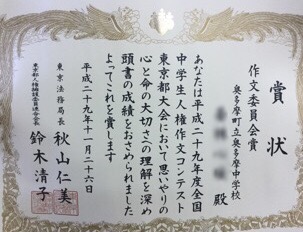 賞状
作文委員会賞
奥多摩町立奥多摩中学校
殿
あなたは平成二十九年度全国
中学生人権作文コンテスト
東京都大会において思いやりの
心と命の大切さへの理解を深め
頭書の成績をおさめられました
よってこれを賞します
平成二十九年十一月二十六日
東京法務局長 秋山仁美
東京都人権擁護委員連合会長 鈴木清子